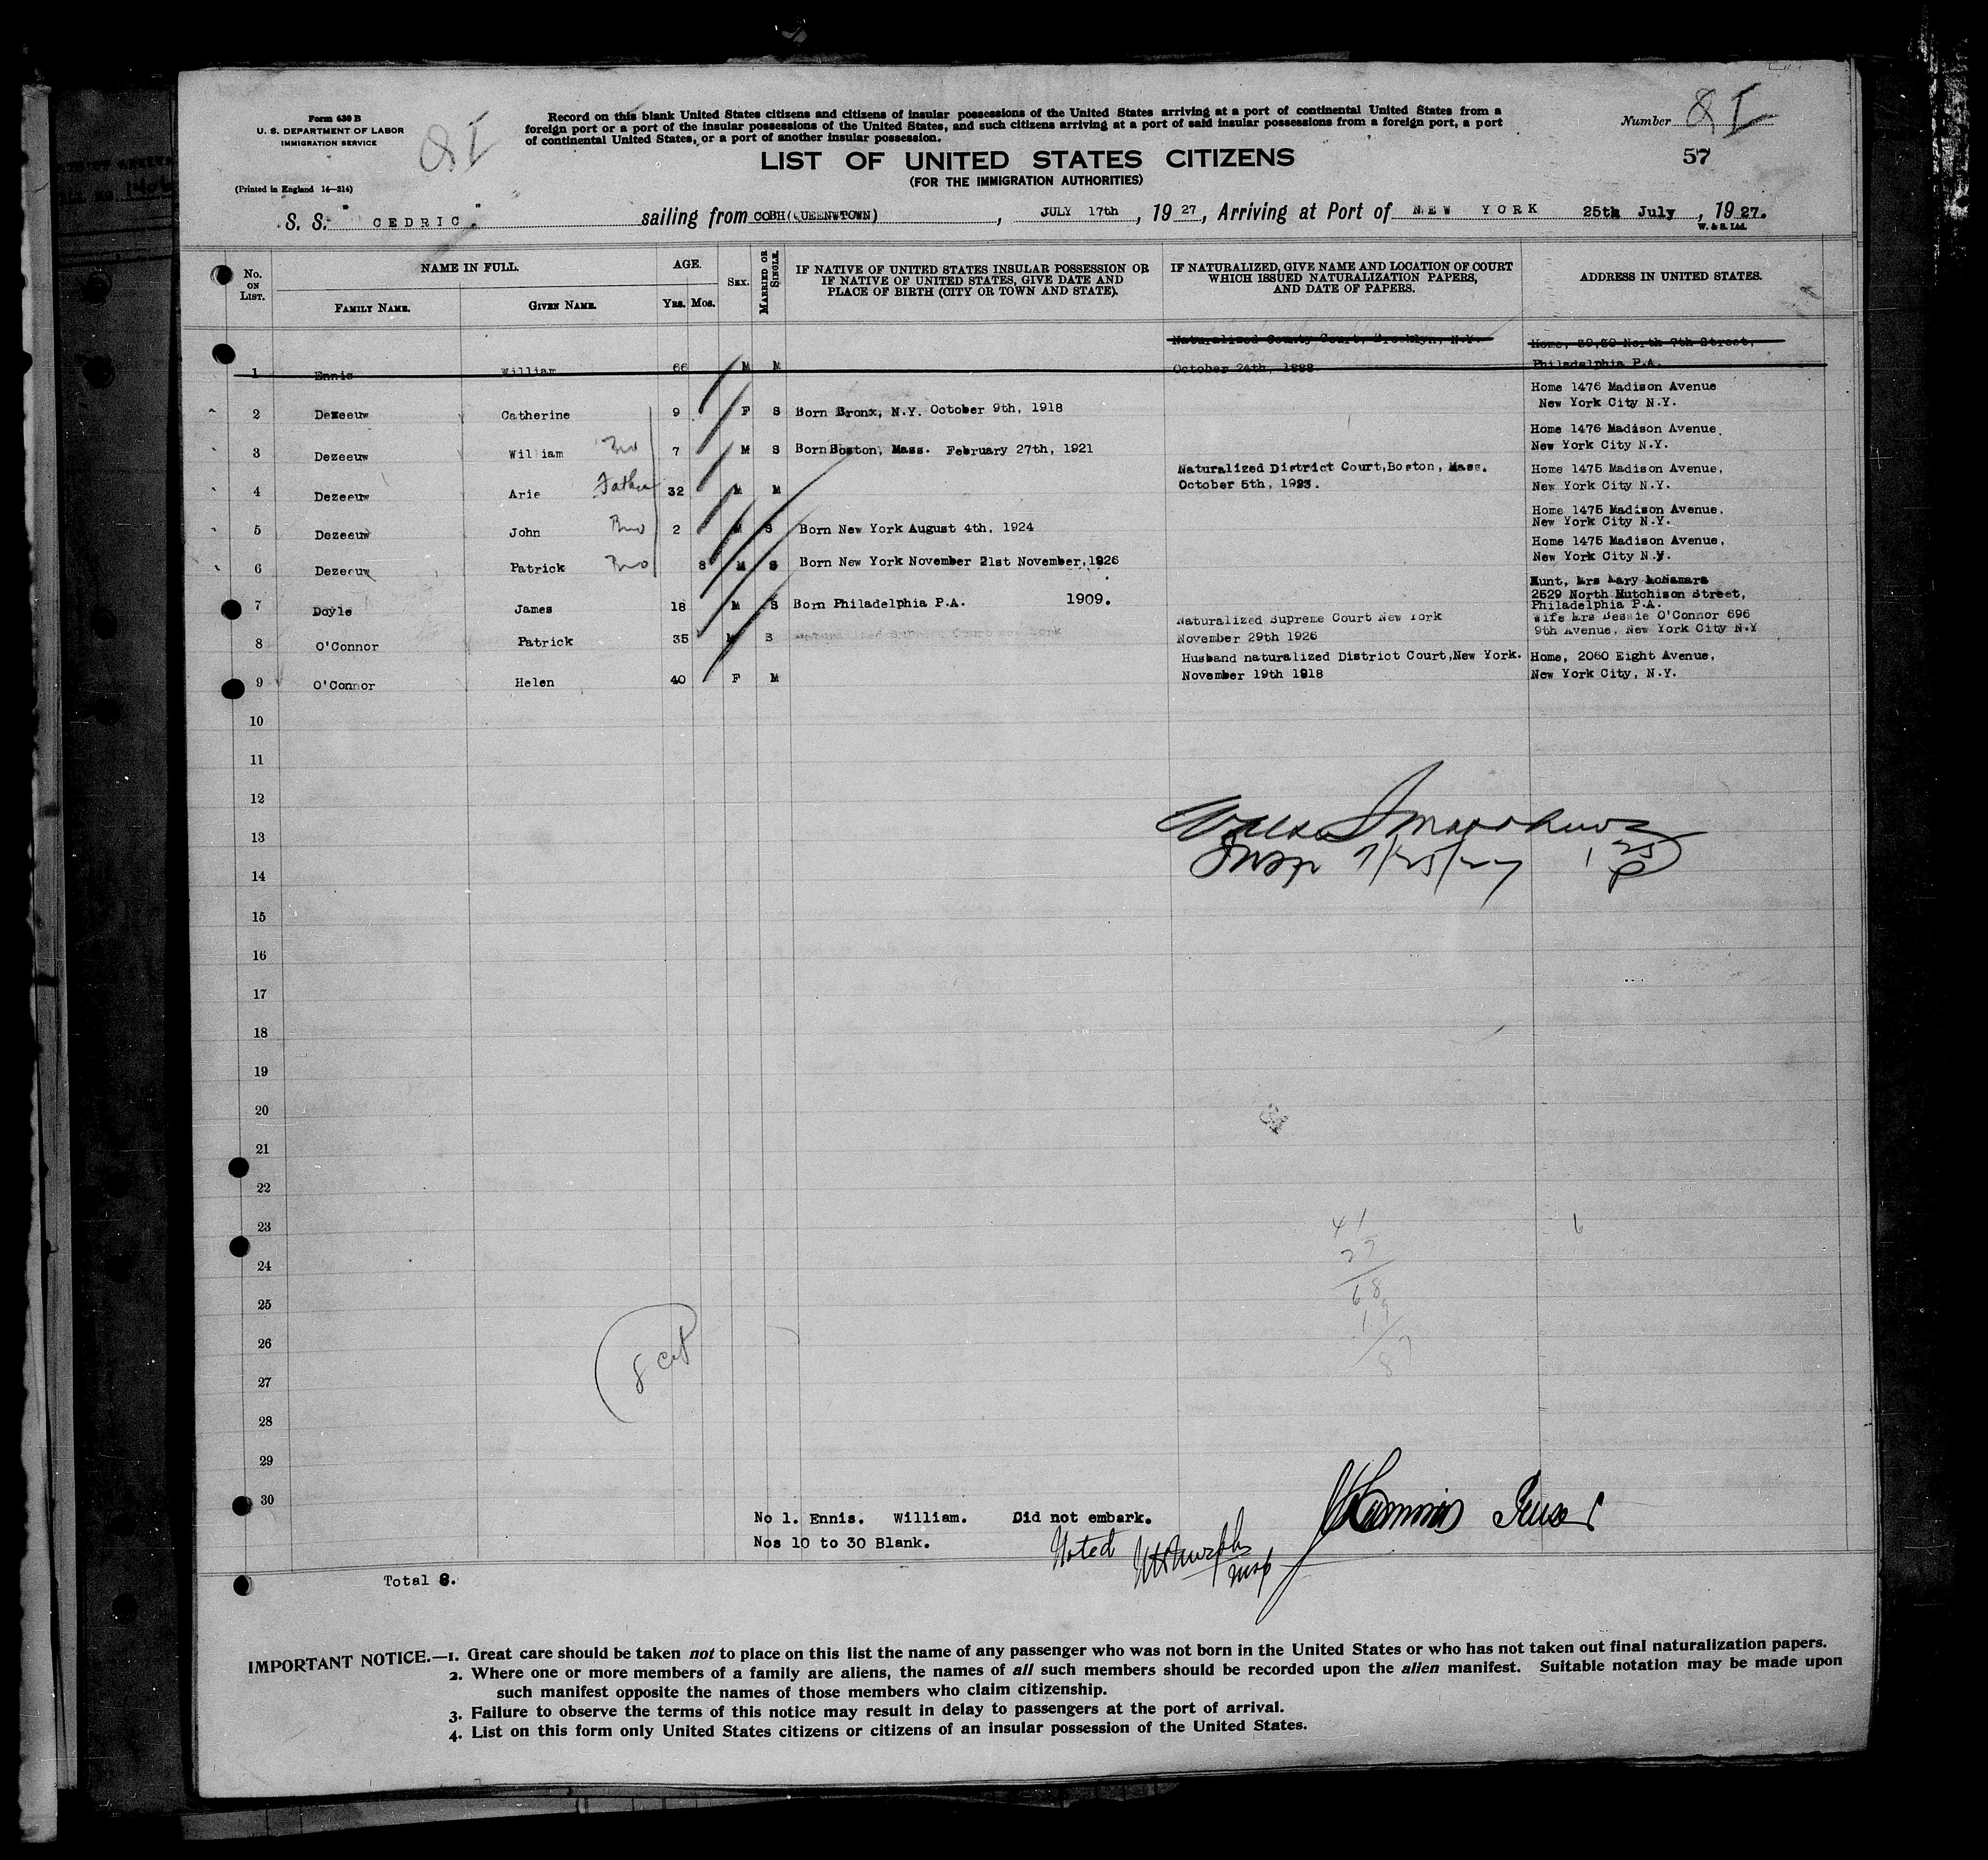 Form 630 B
U. S. DEPARTMENT OF LABOR
IMMIGRATION SERVICE
(Printed in England 14—214)
Record on this blank United States citizens and citizens of insular possessions of the United States arriving at a port of continental United States from a
foreign port or a port of the insular possessions of the United States, and such citizens arriving at a port of said insular possessions from a foreign port, a port
of continental United States, or a port of another insular possession.
LIST OF UNITED STATES CITIZENS
(FOR THE IMMIGRATION AUTHORITIES)
Number
57
S. S. "CEDRIC." sailing from COBH(QUEENWTOWN), JULY 17th, 1927, Arriving at Port of NEW YORK 25th July, 1927.
W. & S. Ltd.
No. ON LIST. NAME IN FULL. AGE. SEX. MARRIED OR SINGLE. IF NATIVE OF UNITED STATES INSULAR POSSESSION OR IF NATIVE OF UNITED STATES, GIVE DATE AND PLACE OF BIRTH (CITY OR TOWN AND STATE). IF NATURALIZED, GIVE NAME AND LOCATION OF COURT WHICH ISSUED NATURALIZATION PAPERS, AND DATE OF PAPERS. ADDRESS IN UNITED STATES.
FAMILY NAME. GIVEN NAME. YRS. MOS.
Naturalized County Court, Brooklyn, N.Y. Home, 39,50 North 7th Street,
1 Ennis William 66 M M October 24th, 1888 Philadelphia P.A.
Home 1476 Madison Avenue
2 Dezeeuw Catherine 9 F S Born Bronx, N.Y. October 9th, 1918 New York City N.Y.
Home 1476 Madison Avenue,
3 Dezeeuw William Bro 7 M S Born Boston, Mass. February 27th, 1921 New York City N.Y.
Naturalized District Court,Boston, Mass. Home 1475 Madison Avenue,
4 Dezeeuw Arie Father 32 M M October 5th, 1923. New York City N.Y.
Home 1475 Madison Avenue,
5 Dezeeuw John Bro 2 M S Born New York August 4th, 1924 New York City N.Y.
Home 1475 Madison Avenue,
6 Dezeeuw Patrick Bro 8 M S Born New York November 21st November,1926 New York N.Y.
Aunt, Mrs Mary McNamara
2529 North Hutchison Street,
7 Doyle James 18 M S Born Philadelphia P.A. 1909. Philadelphia P.A.
Naturalized Supreme Court New York Wife Mrs Bessie O'Connor 696
8 O'Connor Patrick 35 M S November 29th 1926 9th Avenue, New York City N.Y
Husband naturalized District Court,New York. Home, 2060 Eight Avenue,
9 O'Connor Helen 40 F M November 19th 1918 New York City, N.Y.
10
11
12
13
Insp 7/25/27
14
15
16
17
18
19
20
21
22
23 41 6
24 27
25 68
19
26 87
8 cit
27
28
29
30
No 1. Ennis. William. Did not embark.
Nos 10 to 30 Blank.
Noted
Insp
Total 8.
IMPORTANT NOTICE.—1. Great care should be taken not to place on this list the name of any passenger who was not born in the United States or who has not taken out final naturalization papers.
2. Where one or more members of a family are aliens, the names of all such members should be recorded upon the alien manifest. Suitable notation may be made upon
such manifest opposite the names of those members who claim citizenship.
3. Failure to observe the terms of this notice may result in delay to passengers at the port of arrival.
4. List on this form only United States citizens or citizens of an insular possession of the United States.